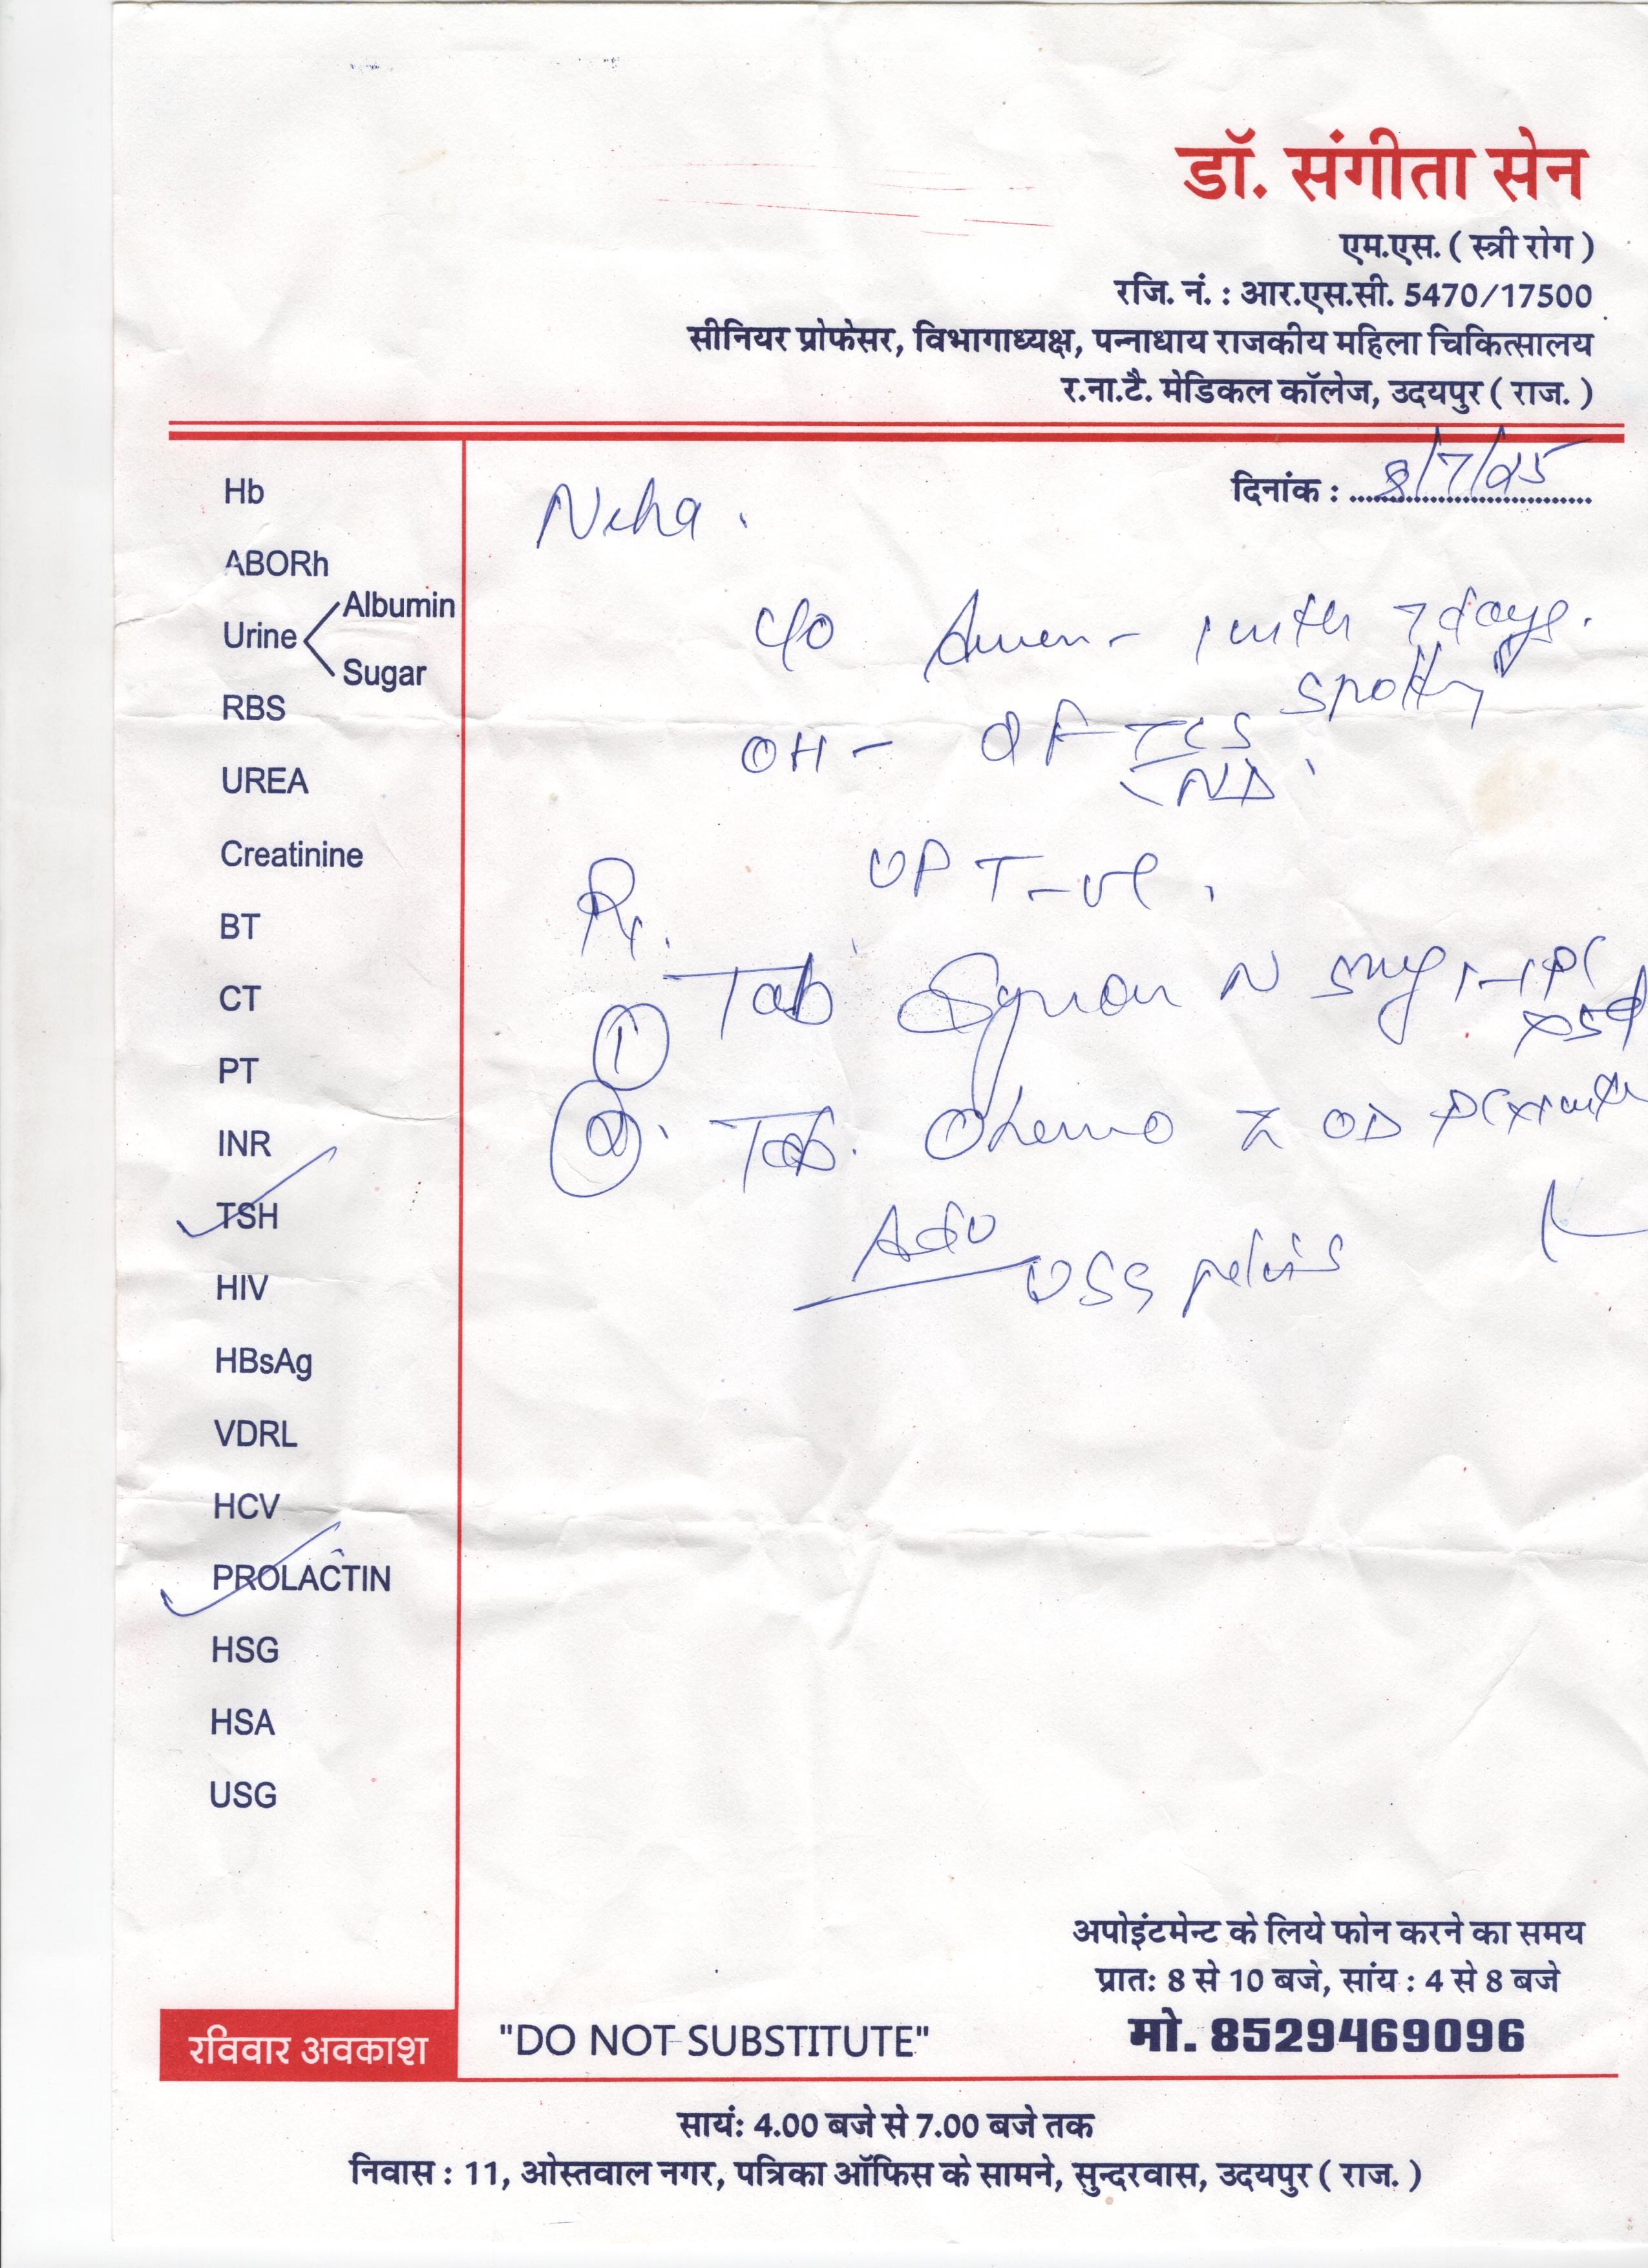 डॉ. संगीता सेन
एम.एस. ( स्त्री रोग )
रजि. नं. : आर.एस.सी. 5470/17500
सीनियर प्रोफेसर, विभागाध्यक्ष, पन्नाधाय राजकीय महिला चिकित्सालय
र.ना.टै. मेडिकल कॉलेज, उदयपुर ( राज. )
दिनांक : 8/7/25
Neha.
C/o Amen - 7 days.
spotting
OH -
UPT -ve.
Rx.
① Tab N 5mg 1-1 PC
x5d
②. Tab. OD PC
Adv
USG pelvis
Hb
ABORh
Urine Albumin
Sugar
RBS
UREA
Creatinine
BT
CT
PT
INR
TSH
HIV
HBsAg
VDRL
HCV
PROLACTIN
HSG
HSA
USG
अपोइंटमेन्ट के लिये फोन करने का समय
प्रातः 8 से 10 बजे, सांय : 4 से 8 बजे
रविवार अवकाश "DO NOT SUBSTITUTE" मो. 8529469096
सायं: 4.00 बजे से 7.00 बजे तक
निवास : 11, ओस्तवाल नगर, पत्रिका ऑफिस के सामने, सुन्दरवास, उदयपुर ( राज. )